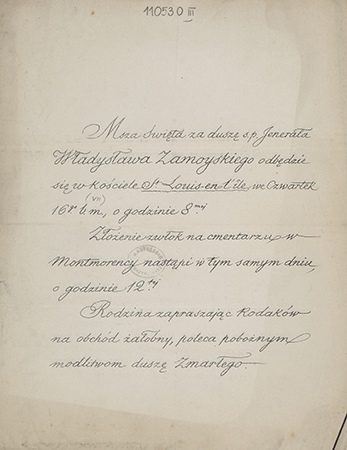 11053 O III
Msza Święta za duszę ś.p. Jenerała
Władysława Zamoyskiego odbędzie
się w kościele St Louis-en l'île, we Czwartek
(VII)
16go b.m., o godzinie 8mej
Złożenie zwłok na cmentarzu w
Montmorency nastąpi w tym samym dniu,
o godzinie 12tej
Rodzina zapraszając Rodaków
na obchód żałobny, poleca pobożnym
modlitwom duszę Zmarłego.